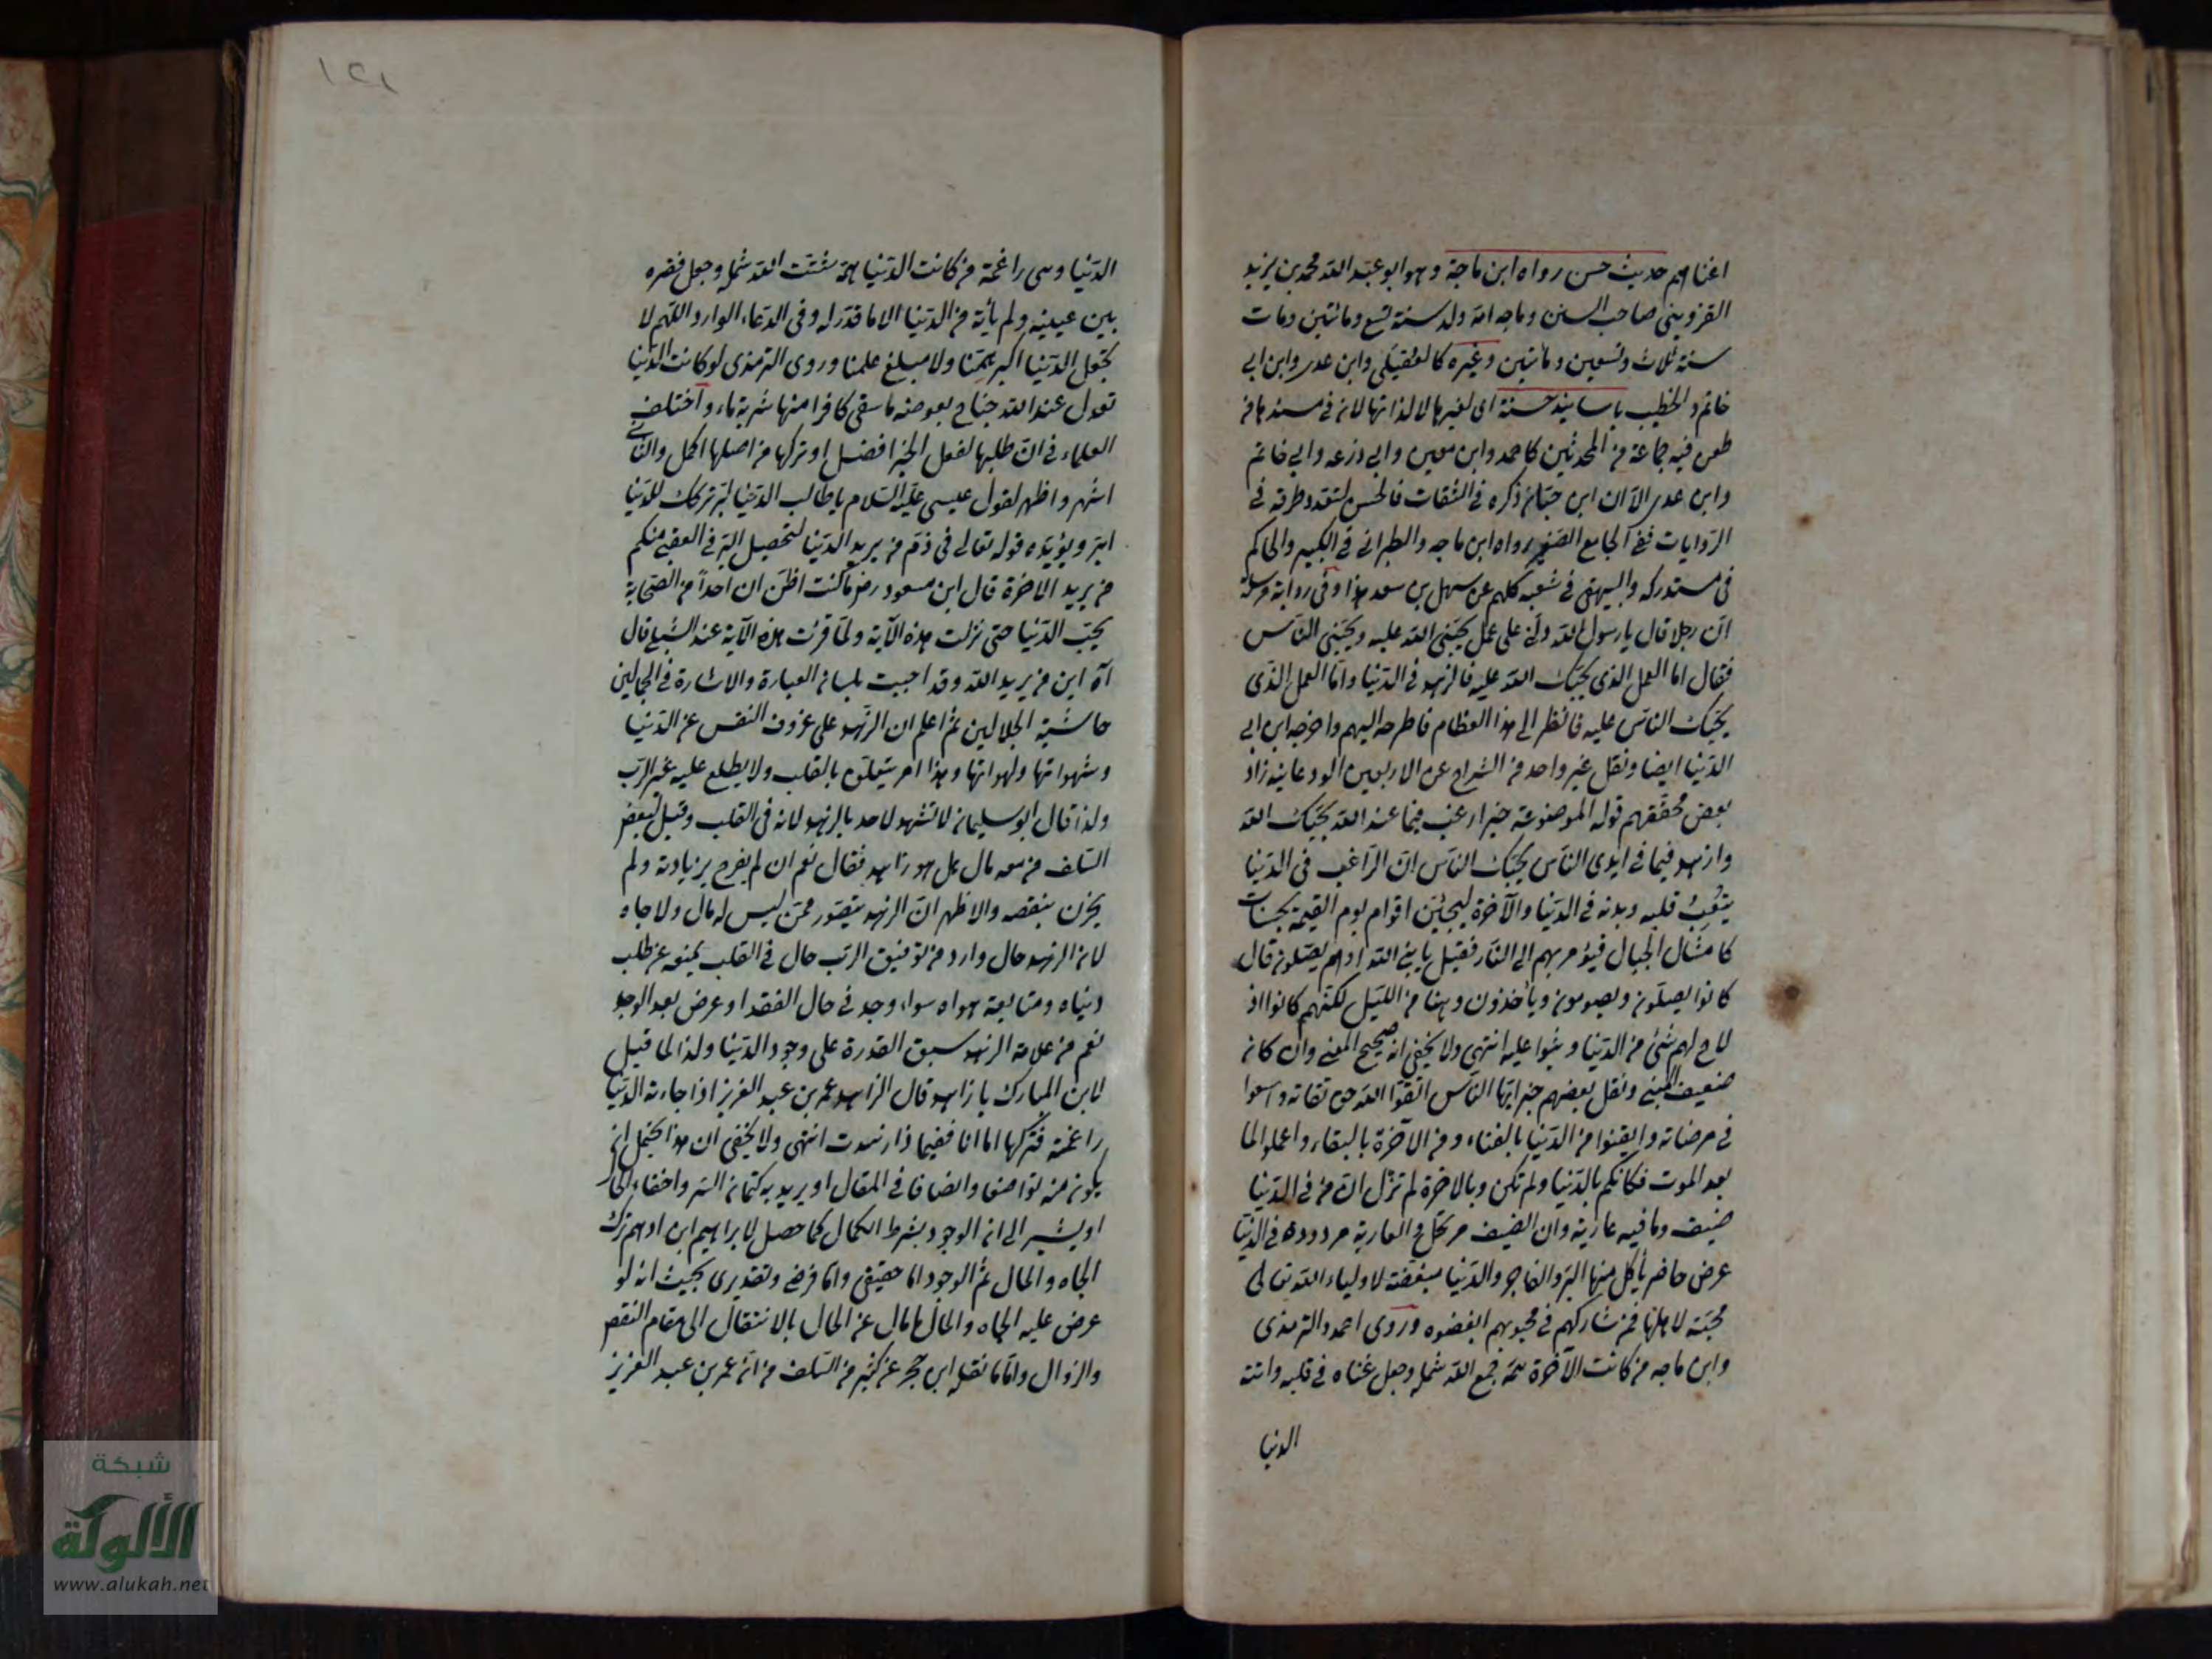 اغناهم حديث حسن رواه ابن ماجة وهو ابو عبد الله محمد بن يزيد
القزويني صاحب السنن وماجه امه ولد سنة تسع ومائتين ومات
سنة ثلاث وتسعين ومائتين وغيره كالعقيلي وابن عدي وابن ابي
حاتم والخطيب باسانيد حسنة اى لغيرها لا لذاتها لان في سندها من
طعن فيه جماعة من المحدثين كاحمد وابن معين وابي زرعه وابي حاتم
وابن عدي الا ان ابن حبان ذكره في الثقات فالحسن لتعدد طرقه في
الروايات ففي الجامع الصغير رواه ابن ماجه والطبراني في الكبير والحاكم
في مستدركه والبيهقي في شعبه كلهم عن سهل بن سعد هذا وفي رواية مرسلة
ان رجلا قال يا رسول الله دلني على عمل يحبني الله عليه ويحبني الناس
فقال اما العمل الذي يحبك الله عليه فالزهد في الدنيا واما العمل الذي
يحبك الناس عليه فانظر الى هذا العظام فاطرحه اليهم واخرجه ابن ابي
الدنيا ايضا ونقل غير واحد من الشراح عن الاربعين الودعانية زاد
بعض محققهم قوله الموضوعة خبر ارغب فيما عند الله يحبك الله
وازهد فيما في ايدى الناس يحبك الناس ان الراغب في الدنيا
يتعب قلبه وبدنه في الدنيا والآخرة ليجيئن اقوام يوم القيمة بحسنات
كامثال الجبال فيؤمر بهم الى النار فقيل يا نبي الله اوهم يصلون قال
كانوا يصلون ويصومون وياخذون وهنا من الليل لكنهم كانوا اذ
لاح لهم شئ من الدنيا وثبوا عليه انتهى ولا يخفى انه صحيح المعنى وان كان
ضعيف المبنى ونقل بعضهم خبر ايها الناس اتقوا الله حق تقاته واسعوا
في مرضاته وايقنوا من الدنيا بالفناء ومن الآخرة بالبقاء واعملوا لما
بعد الموت فكانكم بالدنيا ولم تكن وبالاخرة لم تزل ان من في الدنيا
ضيف وما فيه عارية وان الضيف مرتحل والعارية مردودة في الدنيا
عرض حاضر يأكل منها البر والفاجر والدنيا مبغضة لاولياء الله تعالى
محبة لاهلها فمن شاركهم في محبوبهم ابغضوه وروى احمد والترمذى
وابن ماجه من كانت الآخرة همه جمع الله شمله وجعل غناه في قلبه واتته
الدنيا
١٤١
الدنيا وهى راغمة من كانت الدنيا همه شتت الله شمله وجعل فقره
بين عينيه ولم يأته من الدنيا الا ما قدر له وفى الدعاء الوارد اللهم لا
تجعل الدنيا اكبر همنا ولا مبلغ علمنا وروى الترمذى لو كانت الدنيا
تعدل عند الله جناح بعوضه ما سقى كافرا منها شربة ماء واختلف
العلماء في ان طلبها لفعل الخير افضل او تركها من اصلها اكمل والثاني
اشهر واظهر لقول عيسى عليه السلام يا طالب الدنيا لتبر تركك للدنيا
ابر ويؤيده قوله تعالى في ذم من يريد الدنيا لتحصيل البر في العقبى منكم
من يريد الاخرة قال ابن مسعود رض ما كنت اظن ان احدا من الصحابة
يحب الدنيا حتى نزلت هذه الآية ولما قرئت هذه الآية عند الشبلي قال
آه اين من يريد الله وقد اجبت بلسان العبارة والاشارة في الجمالين
حاشية الجلالين ثم اعلم ان الزهد على عزوف النفس عن الدنيا
وشهواتها ولهواتها وهذا امر يتعلق بالقلب ولا يطلع عليه غير الرب
ولذا قال ابو سليمان لا تشهد لاحد بالزهد لانه في القلب وقيل لبعض
السلف من معه مال هل هو زاهد فقال نعم ان لم يفرح بزيادته ولم
يحزن بنقصه والاظهر ان الزهد يتصور ممن ليس له مال ولا جاه
لان الزهد حال وارد من توفيق الرب حال في القلب يمنعه عن طلب
دنياه ومتابعة هواه سواء وجد في حال الفقد او عرض بعد الوجد
نعم من علامة الزهد سبق القدرة على وجود الدنيا ولذا لما قيل
لابن المبارك يا زاهد قال الزاهد عمر بن عبد العزيز اذا جاءته الدنيا
راغمة فتركها اما انا ففيما ذا زهدت انتهى ولا يخفى ان هذا يحتمل ان
يكون منه تواضعا وانصافا في المقال او يريد به كتمان السر واخفاء الحال
او يشير الى ان الوجود بشرط الكمال كما حصل لابراهيم ابن ادهم ترك
الجاه والمال ثم الوجود اما حقيقى واما فرضى وتقديرى بحيث انه لو
عرض عليه الجاه والمال لمال عن الحال بالانتقال الى مقام النقص
والزوال واما ما نقله ابن حجر عن كثير من السلف من ان عمر بن عبد العزيز
شبكة
الألوكة
www.alukah.net